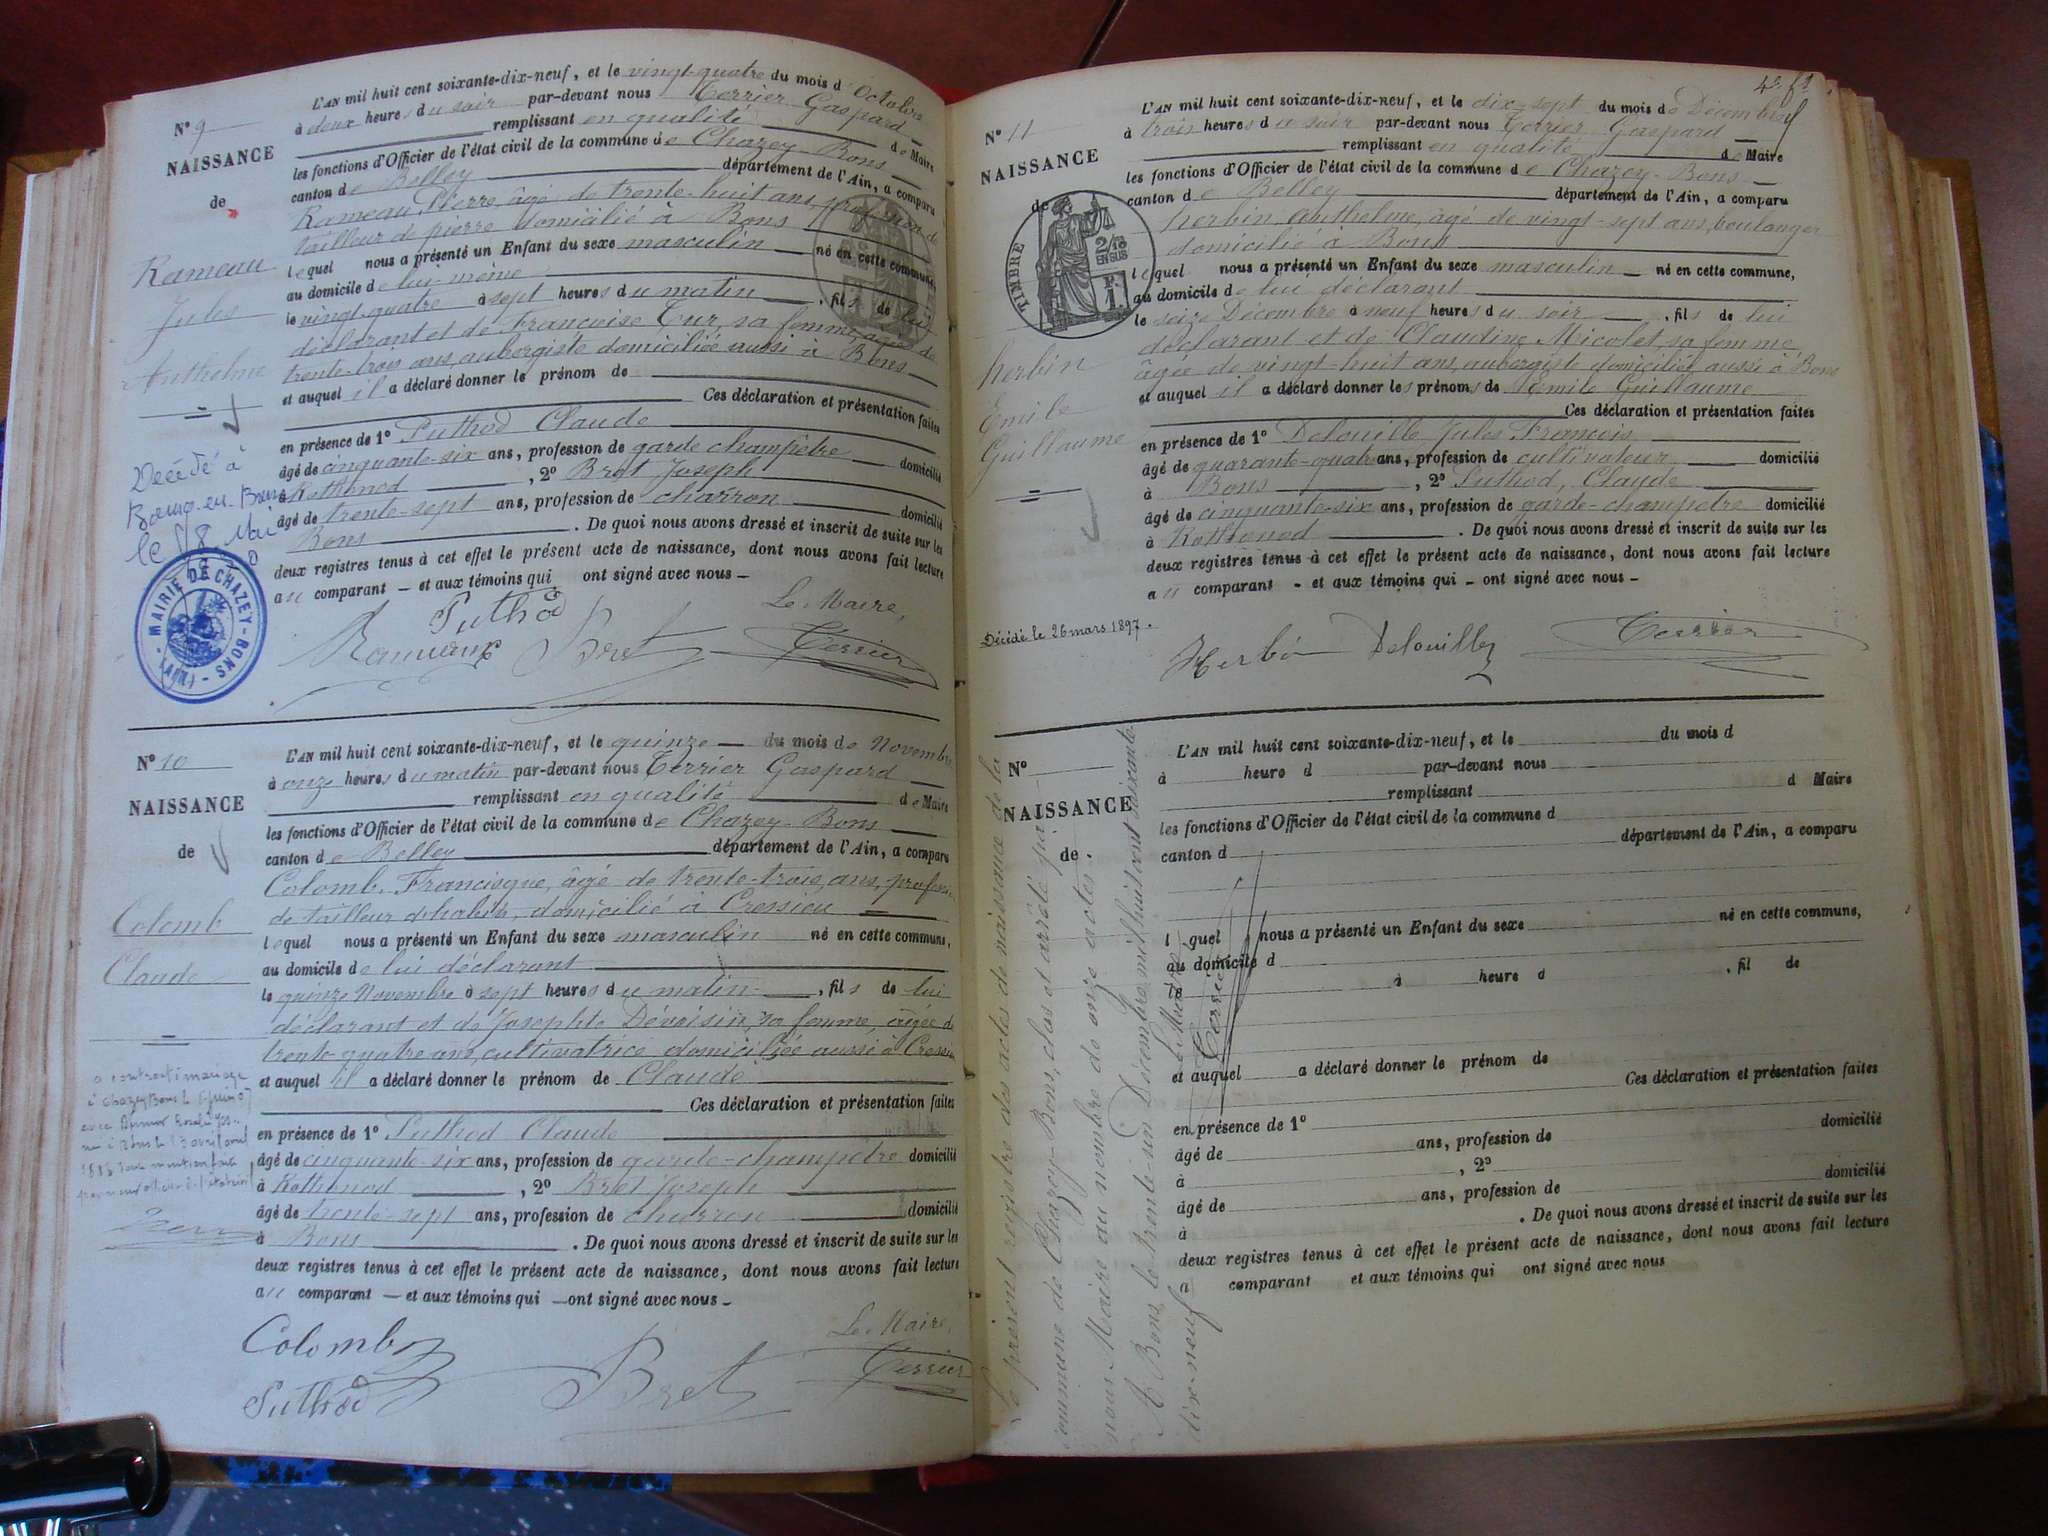 N° 9
NAISSANCE
de
Rameau
Jules
Anthelme
Décédé à
Bourg-en-Bresse
le 18 Mai
MAIRIE DE CHAZEY-BONS (AIN)
L'AN mil huit cent soixante-dix-neuf, et le vingt-quatre du mois d'Octobre
à deux heures du soir par-devant nous Terrier Gaspard
remplissant en qualité de Maire
les fonctions d'Officier de l'état civil de la commune de Chazey-Bons
canton de Belley département de l'Ain, a comparu
Rameau Pierre, âgé de trente-huit ans, profession de
tailleur de pierre domicilié à Bons
lequel nous a présenté un Enfant du sexe masculin né en cette commune,
au domicile de lui-même
le vingt quatre à sept heures du matin, fils de lui
déclarant et de Françoise Tur, sa femme, âgée de
trente-trois ans, aubergiste domiciliée aussi à Bons
et auquel il a déclaré donner le prénom de
Ces déclaration et présentation faites
en présence de 1° Puthod Claude
âgé de cinquante-six ans, profession de garde champêtre domicilié
à Rothonod, 2° Bret Joseph
âgé de trente-sept ans, profession de charron domicilié
Bons. De quoi nous avons dressé et inscrit de suite sur les
deux registres tenus à cet effet le présent acte de naissance, dont nous avons fait lecture
au comparant — et aux témoins qui ont signé avec nous —
Puthod Le Maire,
Rameaux Bret Terrier
N° 10
NAISSANCE
de
Colomb
Claude
a contracté mariage
à Chazey Bons le
avec
L'AN mil huit cent soixante-dix-neuf, et le quinze — du mois de Novembre
à onze heures du matin par-devant nous Terrier Gaspard
remplissant en qualité de Maire
les fonctions d'Officier de l'état civil de la commune de Chazey-Bons
canton de Belley département de l'Ain, a comparu
Colomb Francisque, âgé de trente-trois ans, profession
de tailleur d'habits, domicilié à Cressieu
lequel nous a présenté un Enfant du sexe masculin né en cette commune,
au domicile de lui déclarant
le quinze Novembre à sept heures du matin, fils de lui
déclarant et de Josephte Dévoisin, sa femme, âgée de
trente quatre ans, cultivatrice domiciliée aussi à Cressieu
et auquel il a déclaré donner le prénom de Claude
Ces déclaration et présentation faites
en présence de 1° Puthod Claude
âgé de cinquante-six ans, profession de garde-champêtre domicilié
à Rothonod, 2° Bret Joseph
âgé de trente-sept ans, profession de charron domicilié
à Bons. De quoi nous avons dressé et inscrit de suite sur les
deux registres tenus à cet effet le présent acte de naissance, dont nous avons fait lecture
au comparant — et aux témoins qui — ont signé avec nous —
Colomb Le Maire,
Puthod Bret Terrier
N° 11
NAISSANCE
de
TIMBRE
2/10 EN SUS
herbin
Emile
Guillaume
Décédé le 26 mars 1897.
L'AN mil huit cent soixante-dix-neuf, et le dix-sept du mois de Décembre
à trois heures du soir par-devant nous Terrier Gaspard
remplissant en qualité de Maire
les fonctions d'Officier de l'état civil de la commune de Chazey-Bons
canton de Belley département de l'Ain, a comparu
herbin anthelme, âgé de vingt-sept ans, boulanger
domicilié à Bons
lequel nous a présenté un Enfant du sexe masculin — né en cette commune,
au domicile de lui déclarant
le seize Décembre à neuf heures du soir, fils de lui
déclarant et de Claudine Micolet, sa femme,
âgée de vingt-huit ans, aubergiste domiciliée aussi à Bons
et auquel il a déclaré donner les prénoms de Emile Guillaume
Ces déclaration et présentation faites
en présence de 1° Delouille Jules François
âgé de quarante-quatre ans, profession de cultivateur domicilié
à Bons, 2° Puthod, Claude
âgé de cinquante-six ans, profession de garde-champêtre domicilié
à Rothonod. De quoi nous avons dressé et inscrit de suite sur les
deux registres tenus à cet effet le présent acte de naissance, dont nous avons fait lecture
au comparant - et aux témoins qui — ont signé avec nous —
Herbin Delouille Terrier
N°
NAISSANCE
de
L'AN mil huit cent soixante-dix-neuf, et le du mois d
à heure d par-devant nous
remplissant d Maire
les fonctions d'Officier de l'état civil de la commune d
canton d département de l'Ain, a comparu
l quel nous a présenté un Enfant du sexe né en cette commune,
au domicile d
le à heure d, fil de
et auquel a déclaré donner le prénom de
Ces déclaration et présentation faites
en présence de 1°
âgé de ans, profession de domicilié
à, 2°
âgé de ans, profession de domicilié
à. De quoi nous avons dressé et inscrit de suite sur les
deux registres tenus à cet effet le présent acte de naissance, dont nous avons fait lecture
a comparant et aux témoins qui ont signé avec nous
Le présent registre des actes de naissance de la
commune de Chazey-Bons, clos et arrêté par
nous Maire au nombre de onze actes.
A Bons le trente-un Décembre mil huit cent soixante
dix-neuf
Le Maire
Terrier